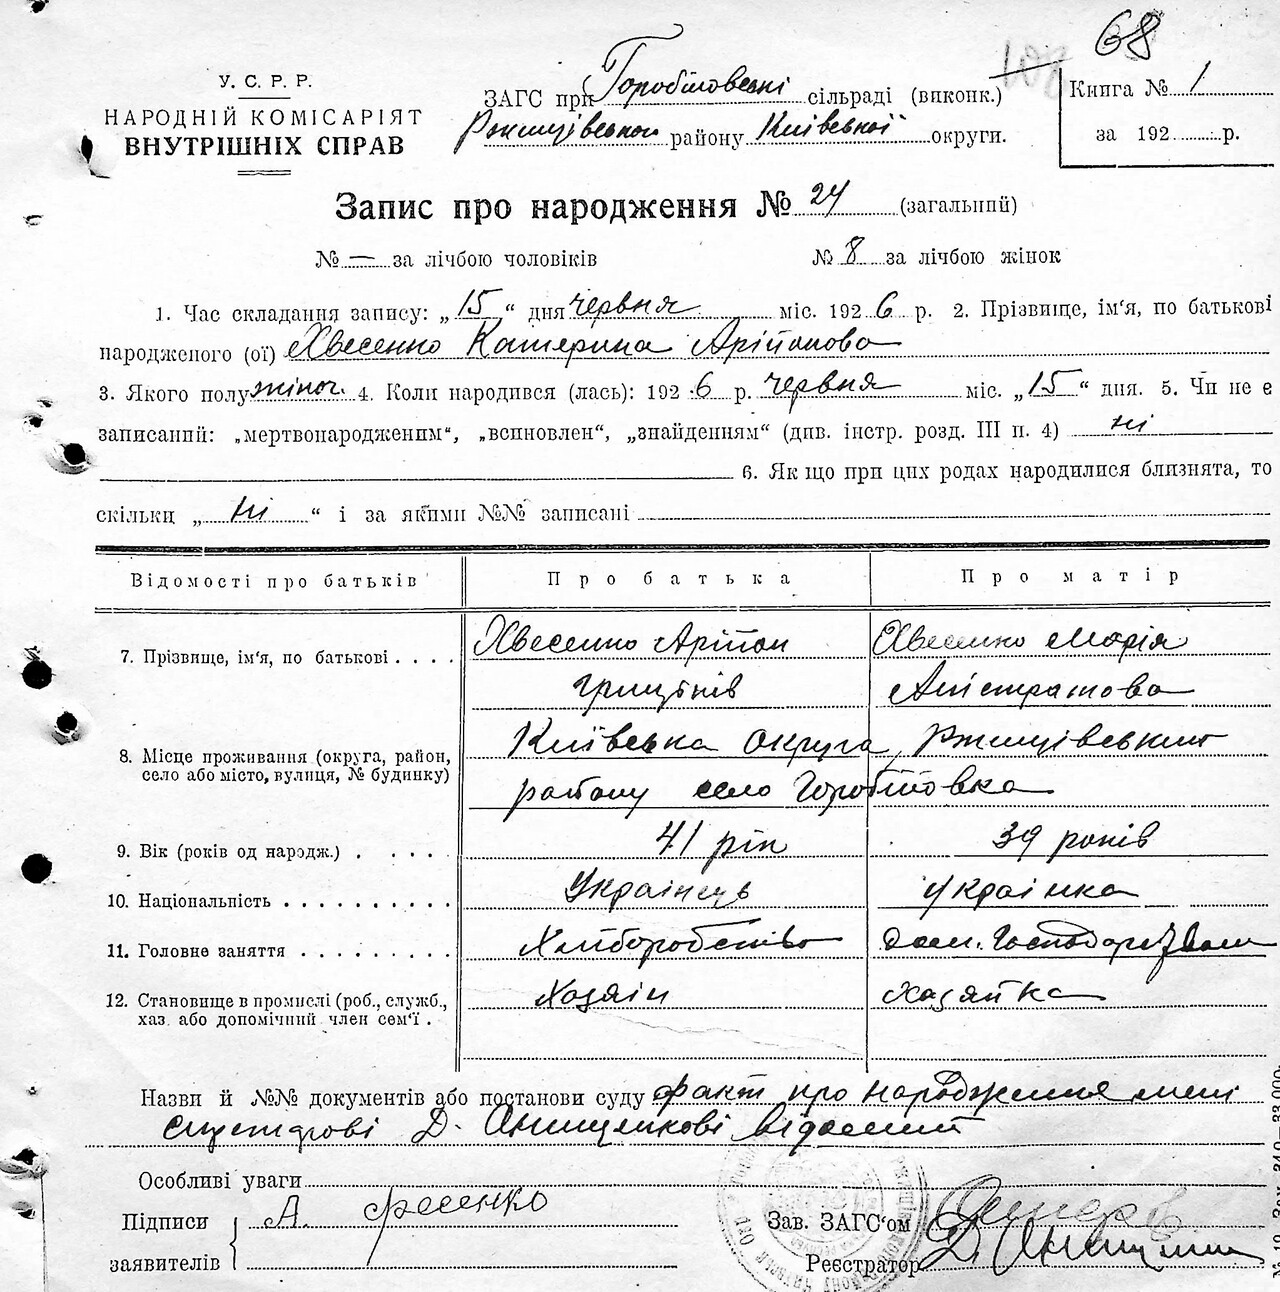 68
У. С. Р. Р.
НАРОДНІЙ КОМІСАРІЯТ
ВНУТРІШНІХ СПРАВ
ЗАГС при Горобіївські сільраді (виконк.)
Ржищівськои району Київської округи.
Книга № 1
за 192 р.
Запис про народження № 24 (загальний)
№ — за лічбою чоловіків № 8 за лічбою жінок
1. Час складання запису: „ 15 “ дня червня міс. 192 6 р. 2. Прізвище, ім‘я, по батькові
народженого (ої) Хвесенко Катерина Арійонова
3. Якого полу жіноч. 4. Коли народився (лась): 192 6 р. червня міс. „ 15 “ дня. 5. Чи не є
записаний: „мертвонародженим“, „всиновлен“, „знайденням“ (див. інстр. розд. III п. 4) ні
6. Як що при цих родах народилися близнята, то
скільки „ ні “ і за якими №№ записані
Відомості про батьків Про батька Про матір
7. Прізвище, ім‘я, по батькові . . . . Хвесенко Арійон Хвесенко Марія
Грицьків
8. Місце проживання (округа, район, Київська округа, Ржищівського
село або місто, вулиця, № будинку) району село Горобіївка
9. Вік (років од народж.) . . . . . 41 рік 39 років
10. Національність . . . . . . . . . . Українець Українка
11. Головне заняття . . . . . . . . . Хліборобство дом.
12. Становище в промислі (роб., служб., Хазяін хазяйка
хаз. або допомічний член сем‘ї .
Назви й №№ документів або постанови суду факт про народження мені
Д. Анищукові відомий
Особливі уваги
Підписи А. Фесенко Зав. ЗАГС‘ом
заявителів Реєстратор Д.